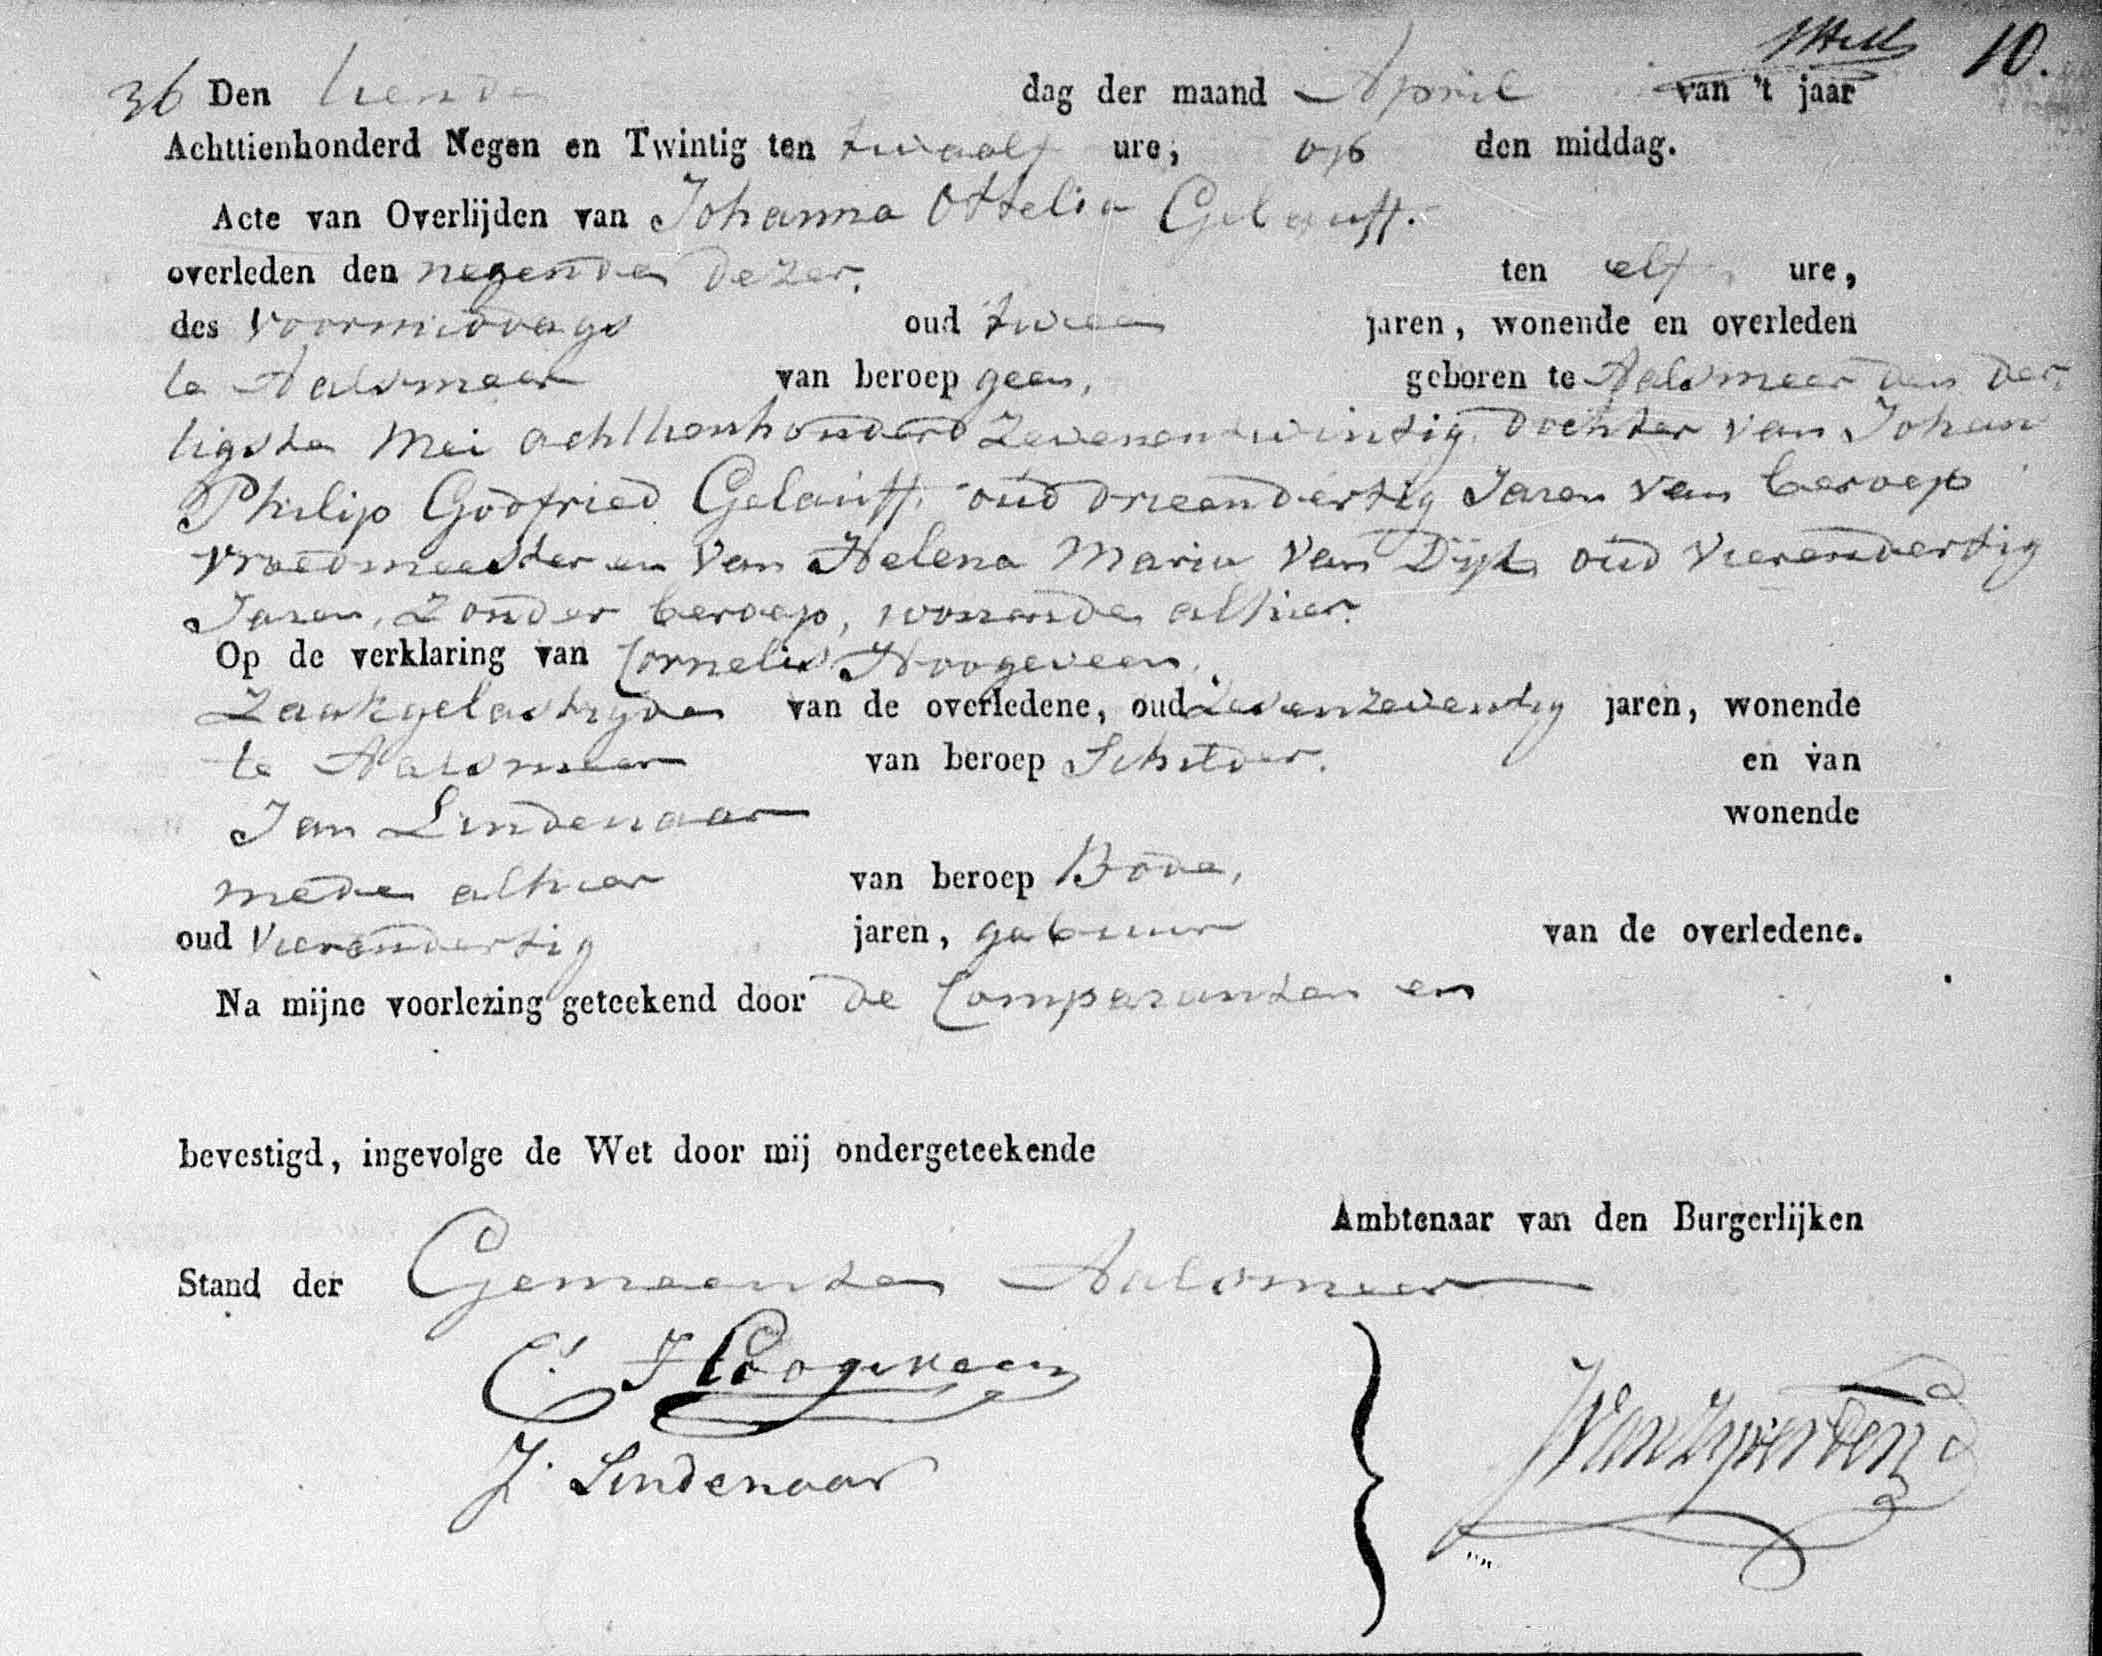 10.
36 Den tiende dag der maand April van 't jaar
Achttienhonderd Negen en Twintig ten twaalf ure, op den middag.
Acte van Overlijden van Johanna Ottelia Gelauff.
overleden den negende dezer, ten elf ure,
des voormiddags oud twee jaren, wonende en overleden
te Aalsmeer van beroep geen, geboren te Aalsmeer den der
tigste Mei achttienhonderd Zevenentwintig, Dochter van Johan
Philip Godfried Gelauff, oud drieendertig Jaren van beroep
vroedmeester en van Helena Maria van Dijk oud vierendertig
Jaren, Zonder beroep, wonende alhier.
Op de verklaring van Cornelis Hoogeveen,
Zaakgelastigde van de overledene, oud Zevenzeventig jaren, wonende
te Aalsmeer van beroep Schilder. en van
Jan Lindenaar wonende
mede alhier van beroep Bode,
oud vierendertig jaren, gebuur van de overledene.
Na mijne voorlezing geteekend door de Comparanten en
bevestigd, ingevolge de Wet door mij ondergeteekende
Ambtenaar van den Burgerlijken
Stand der Gemeente Aalsmeer
C. Hoogeveen
J. Lindenaar